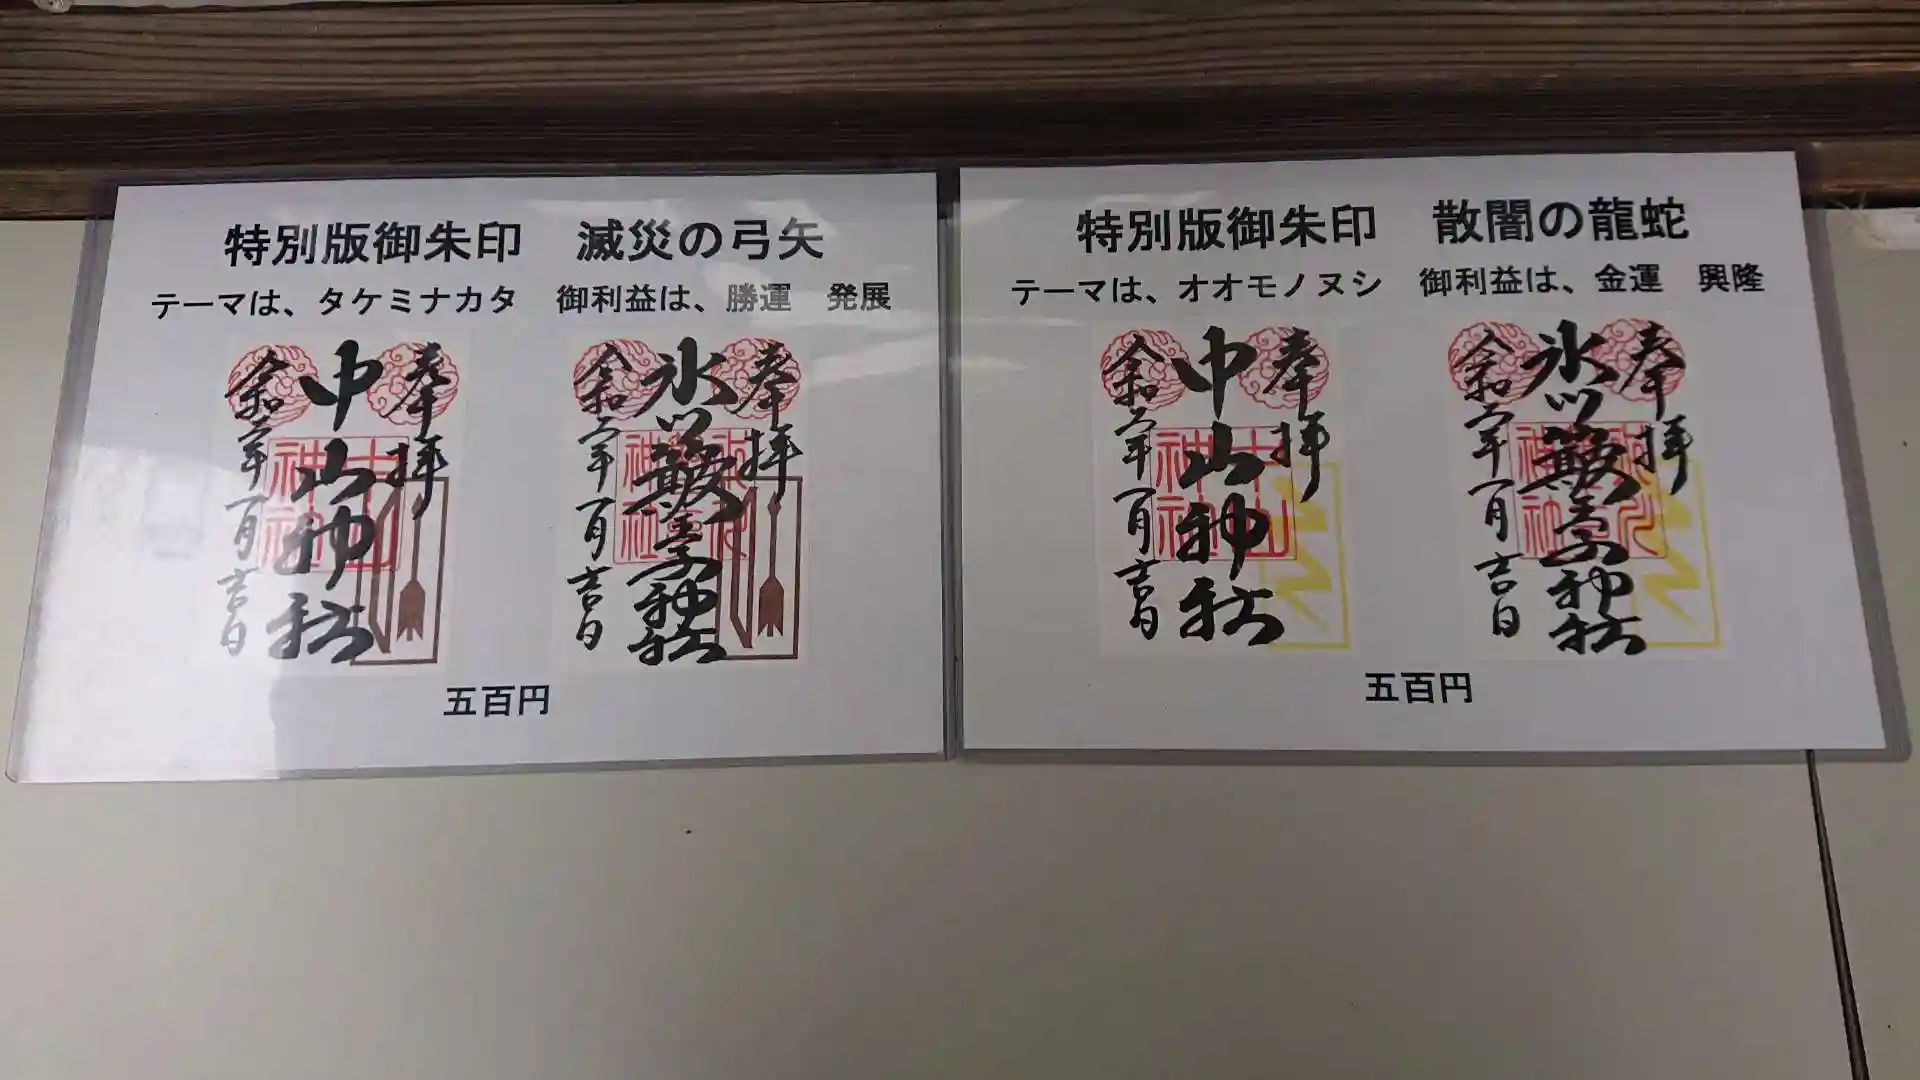 特別版御朱印　滅災の弓矢
テーマは、タケミナカタ　御利益は、勝運　発展
奉拝
中山神社
令和二年一月吉日
奉拝
氷川簸王子神社
令和二年一月吉日
五百円
特別版御朱印　散闇の龍蛇
テーマは、オオモノヌシ　御利益は、金運　興隆
奉拝
中山神社
令和二年一月吉日
奉拝
氷川簸王子神社
令和二年一月吉日
五百円